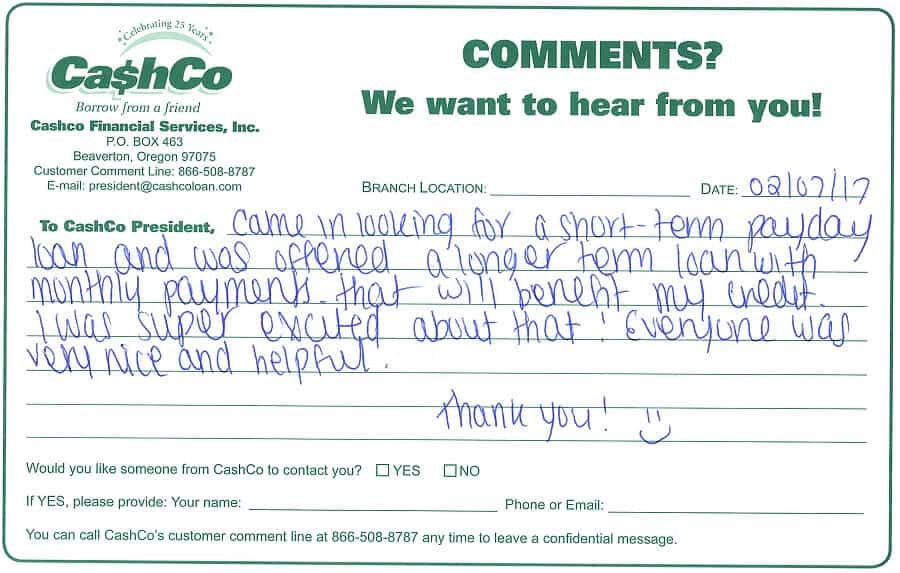 Celebrating 25 Years
Ca$hCo
Borrow from a friend
Cashco Financial Services, Inc.
P.O. BOX 463
Beaverton, Oregon 97075
Customer Comment Line: 866-508-8787
E-mail: president@cashcoloan.com
COMMENTS?
We want to hear from you!
BRANCH LOCATION: DATE: 02/07/17
To CashCo President, Came in looking for a short-term payday
loan and was offered a longer term loan with
monthly payments that will benefit my credit.
I was super excited about that! Everyone was
very nice and helpful.
Thank you! :)
Would you like someone from CashCo to contact you? ☐ YES ☐ NO
If YES, please provide: Your name: Phone or Email:
You can call CashCo's customer comment line at 866-508-8787 any time to leave a confidential message.